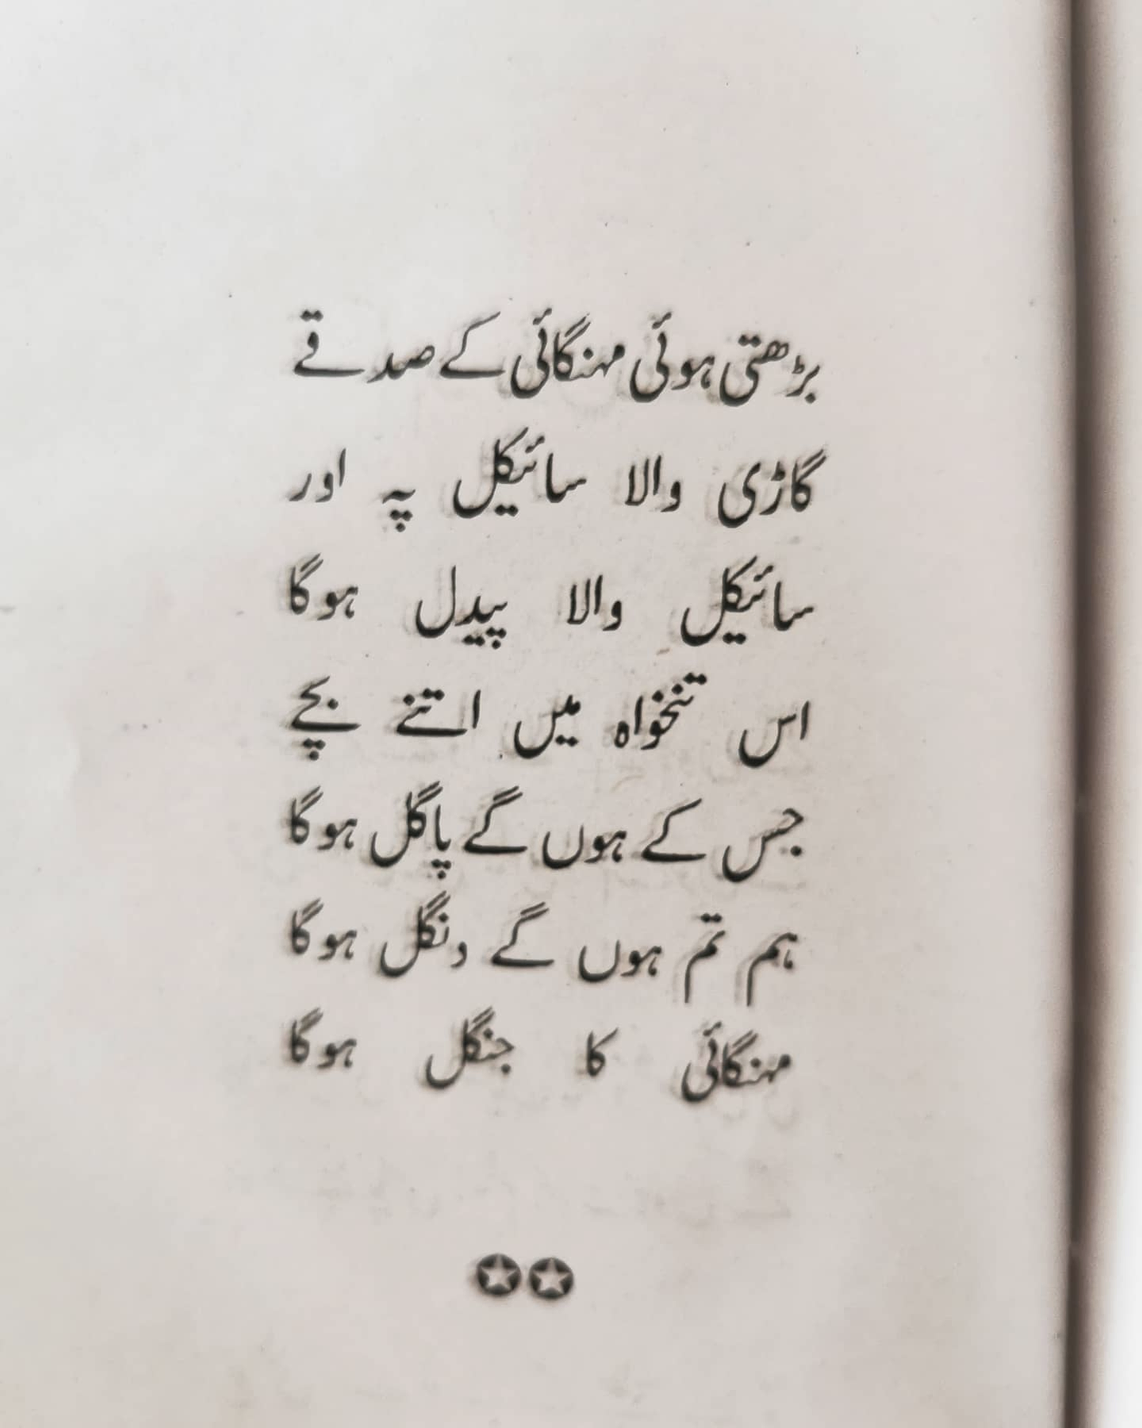 بڑھتی ہوئی مہنگائی کے صدقے
گاڑی والا سائیکل پہ اور
سائیکل والا پیدل ہوگا
اس تنخواہ میں اتنے بچے
جس کے ہوں گے پاگل ہوگا
ہم تم ہوں گے دنگل ہوگا
مہنگائی کا جنگل ہوگا